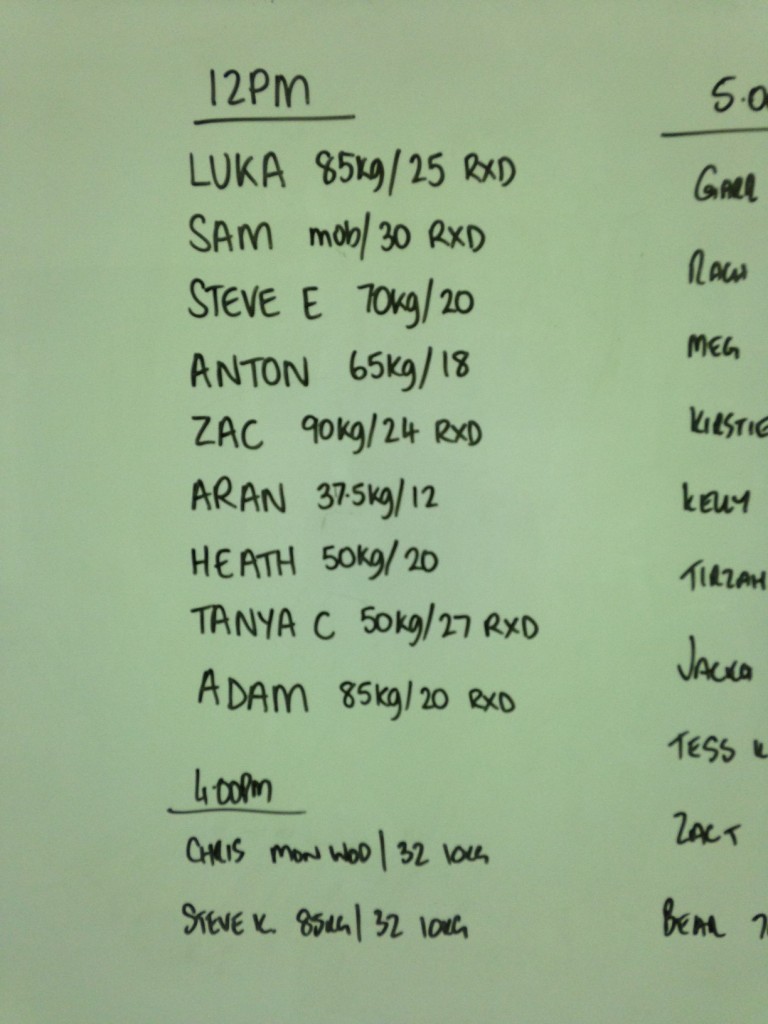 12PM
LUKA 85kg/25 RXD
SAM mob/30 RXD
STEVE E 70kg/20
ANTON 65kg/18
ZAC 90kg/24 RXD
ARAN 37.5kg/12
HEATH 50kg/20
TANYA C 50kg/27 RXD
ADAM 85kg/20 RXD
4.00PM
CHRIS MON WOD/32 10KG
STEVE K. 85KG/32 10KG
5.0
GARR
RACH
MEG
KIRSTIE
KELLY
TIRZAH
TESS K
ZAC T
BEAR 7